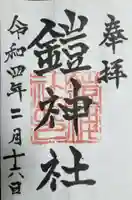 奉拝
鎧神社
令和四年二月十六日